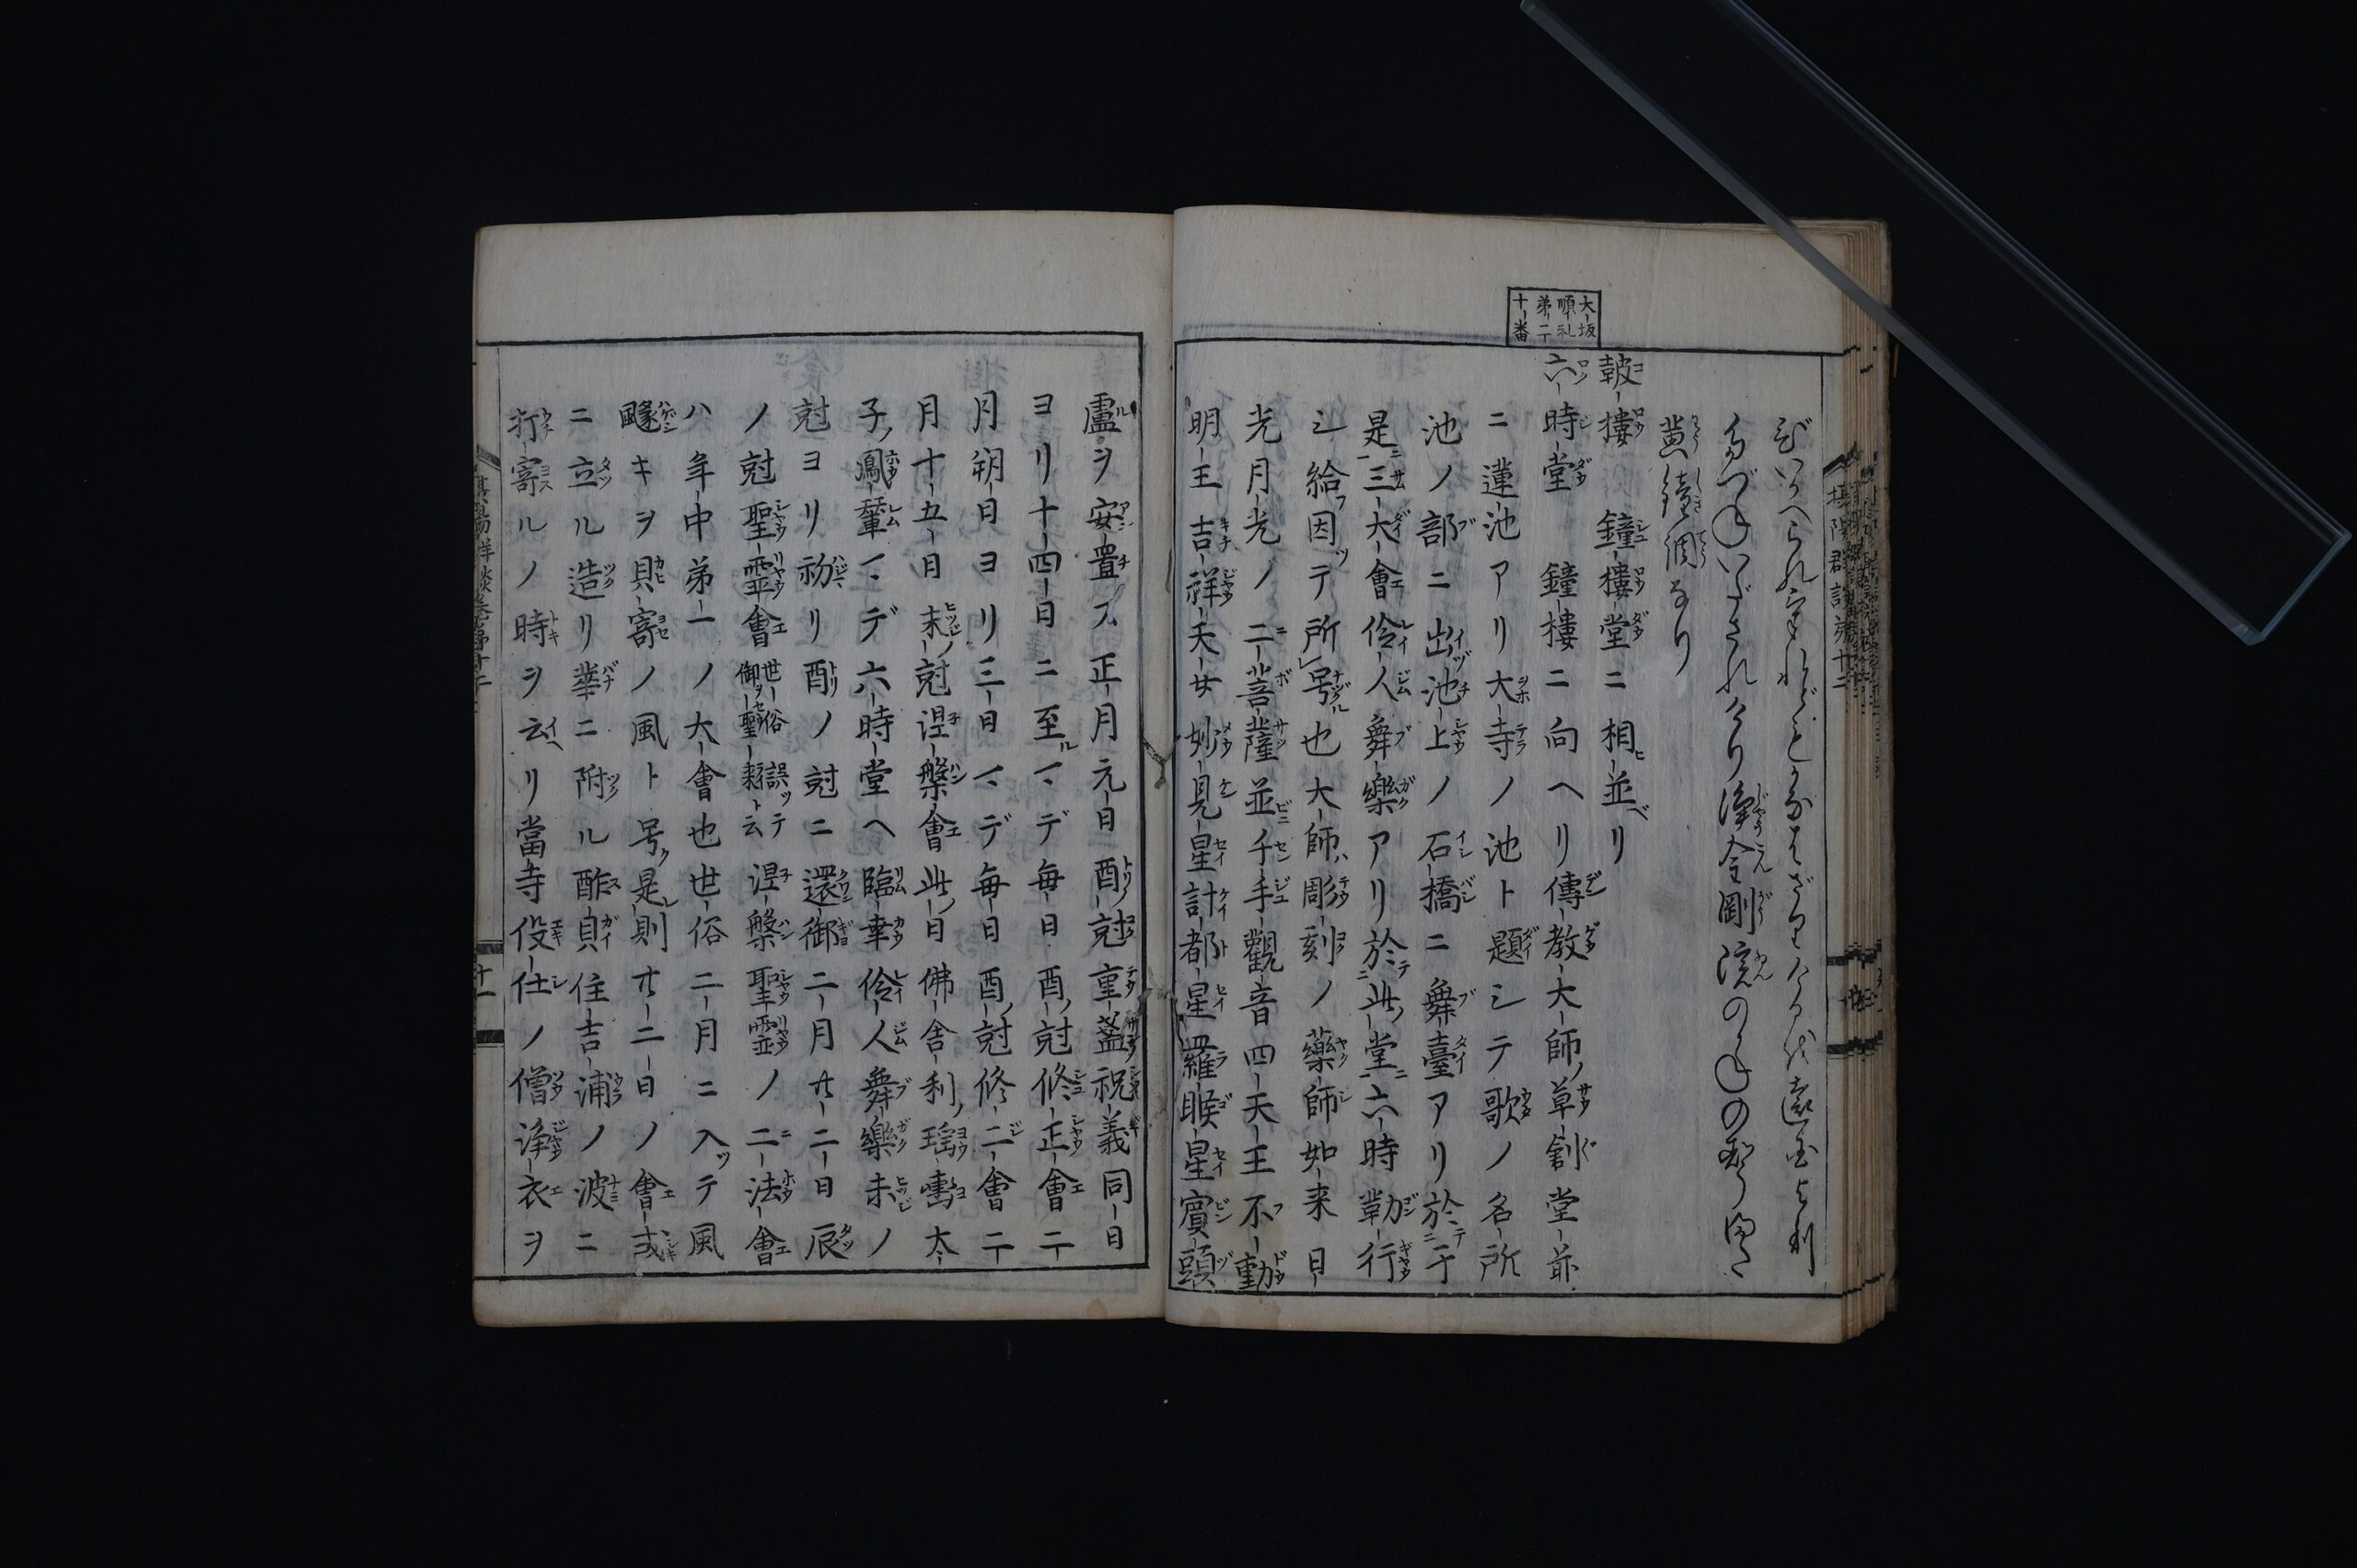 大坂
順礼
第二
十番
黄鐘調なり
皷樓 鐘樓堂ニ相並ベリ
六時堂 鐘樓ニ向ヘリ傳教大師ノ草創堂前
ニ蓮池アリ大寺ノ池ト題シテ歌ノ名所
池ノ部ニ出池上ノ石橋ニ舞臺アリ於テ于
是三大會伶人舞樂アリ於テ此堂ニ六時勤行
シ給フ因ッテ所号也大師ハ彫刻ノ藥師如来日
光月光ノ二菩薩並ニ千手觀音四天王不動
明王吉祥天女妙見星計都星羅睺星賓頭
盧ヲ安置ス正月元日酉尅重盞祝義同日
ヨリ十四日ニ至ルマデ毎日酉ノ尅修正會二
月朔日ヨリ三日マデ毎日酉ノ尅修二會二
月十五日未ノ尅涅槃會此ノ日佛舎利ノ瑶轝太
子ノ鳳輦マデ六時堂ヘ臨幸伶人舞樂未ノ
尅ヨリ初リ酉ノ尅ニ還御二月廿二日辰
ノ尅聖霊會世俗誤ッテ御聖耒ト云涅槃聖霊ノ二法會
ハ年中第一ノ大會也世俗二月ニ入ッテ風
飈キヲ貝寄ノ風ト号ク是レ則廿二日ノ會式
ニ立ル造リ華ニ附ル酢貝住吉浦ノ波ニ
打寄ルノ時ヲ云ヘリ當寺役仕ノ僧浄衣ヲ
十一